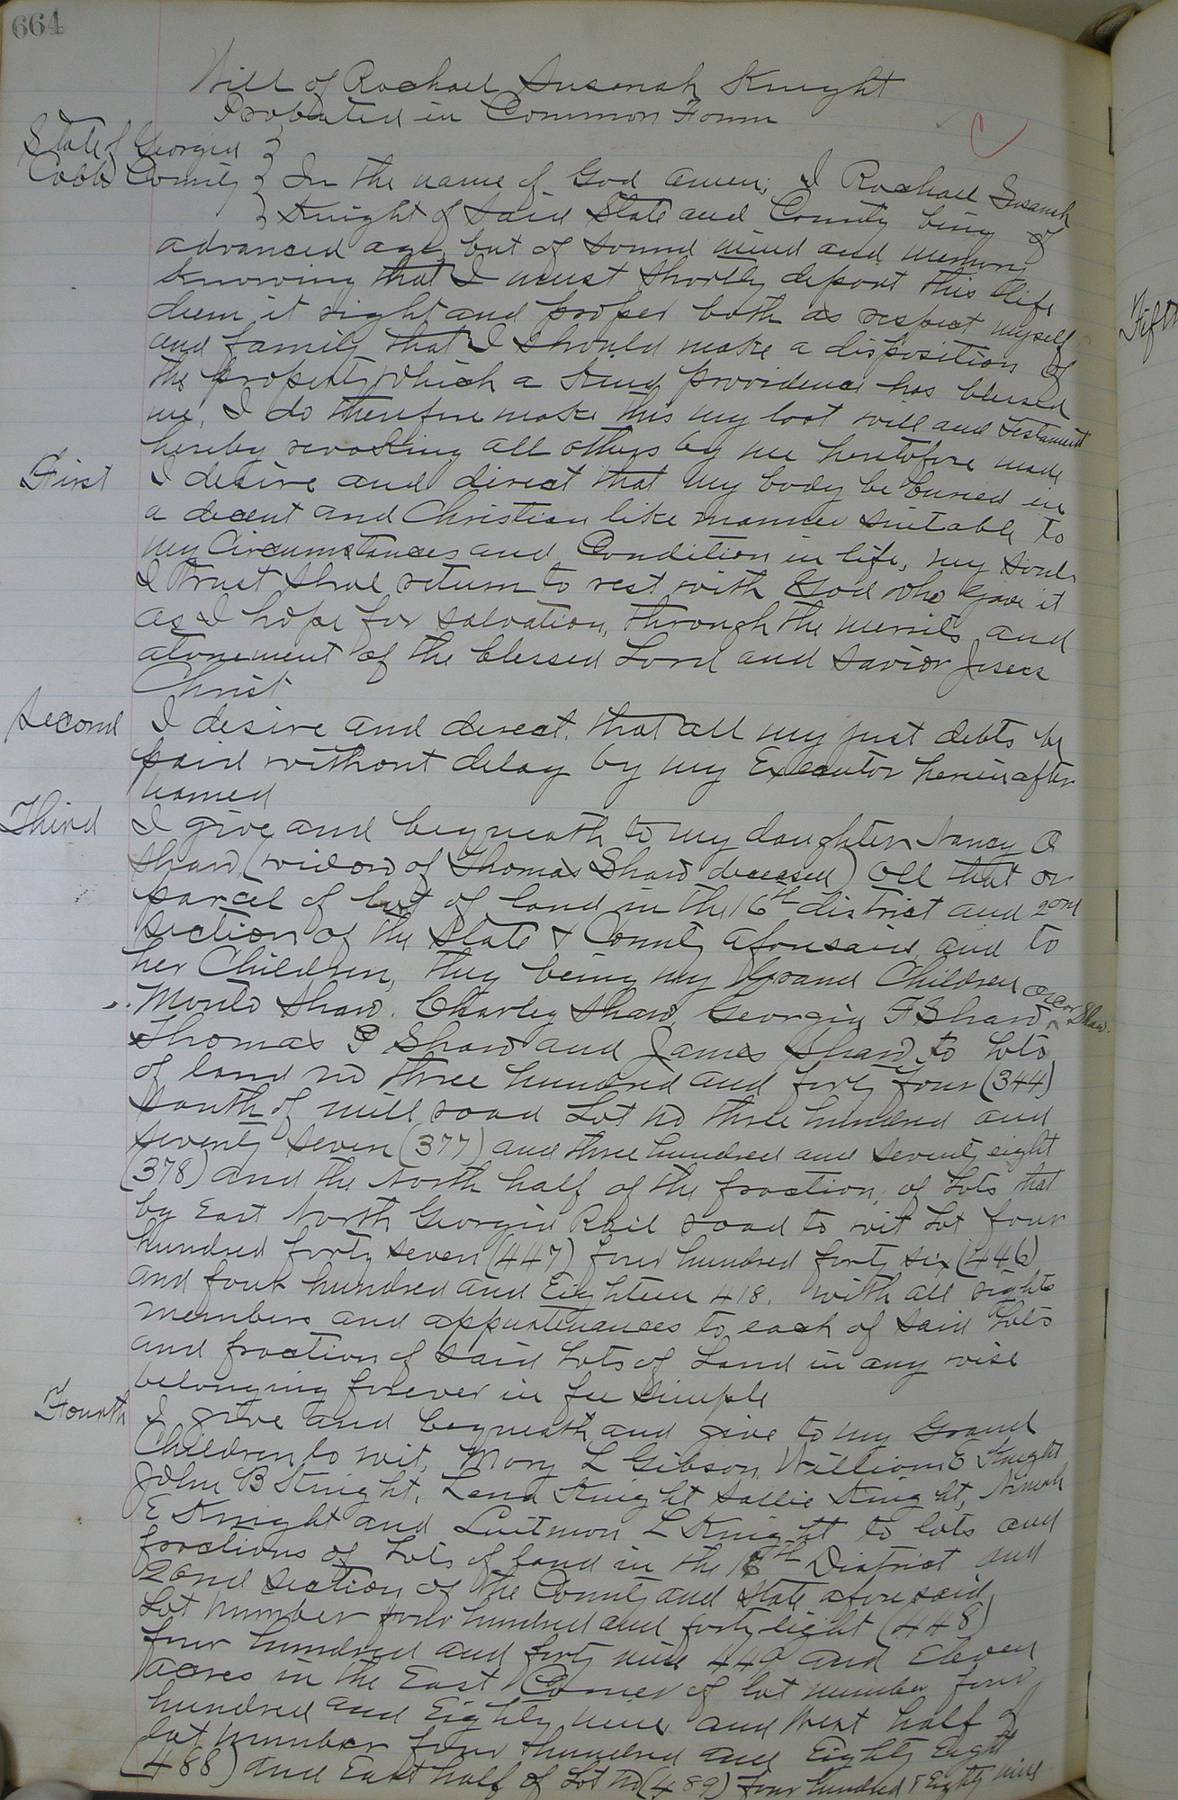 664
Will of Rachael Susanah Knight
Probated in Common Form
State of Georgia
Cobb County } In the name of God amen; I Rachael Susanah
Knight of said State and County being of
advanced age but of sound mind and memory
knowing that I must shortly depart this life
deem it right and proper both as respect myself
and family that I should make a disposition of
the property which a kind providence has blessed
me, I do therefore make this my last will and testament
hereby revoking all others by me heretofore made
First I desire and direct that my body be buried in
a decent and Christian like manner suitable to
my Circumstances and Condition in life, my soul
I trust shal return to rest with God who gave it
as I hope for salvation, through the merrits and
atonement of the blessed Lord and Savior Jesus
Christ
Second I desire and direct. that all my just debts be
paid without delay by my Executor hereinafter
named
Third I give and beqneath to my daughter Nancy O
Shaw (widow of Thomas Shaw deceased) all that or
parcel of lot of land in the 16th district and 2ond
section of the State & County aforesaid and to
her Children, they being my Grand Children Oscar Shaw
Monto Shaw. Charley Shaw, Georgia F Shaw
Thomas P Shaw and James Shaw to Lots
of land no three hundred and forty four (344)
South of mill road Lot no three hundred and
seventy seven (377) and three hundred and seventy eight
(378) and the North half of the fraction, of Lots that
by East North Georgia Rail road to wit Lot four
hundred forty seven (447) four hundred forty six (446)
and four hundred and Eighteen 418. with all rights
members and appurtenances to each of said Lots
and fraction of said Lots of Land in any wise
belonging forever in fee simple
Fourth I give and beqneath and give to my Grand
Children to wit, Mary L Gibson, William E Knight
John B Knight, Lena Knight Sallie Knight,
E Knight and L Knight to lots and
fractions of Lots of land in the 16th District and
2ond section of the County and State aforesaid
Lot number four hundred and forty eight (448)
four hundred and forty nine 449 and Eleven
acres in the East Corner of lot number four
hundred and Eighty nine and West half of
lot number four hundred and Eighty Eight
(488) and East half of Lot no (489) four hundred & Eighty nine
Fifth